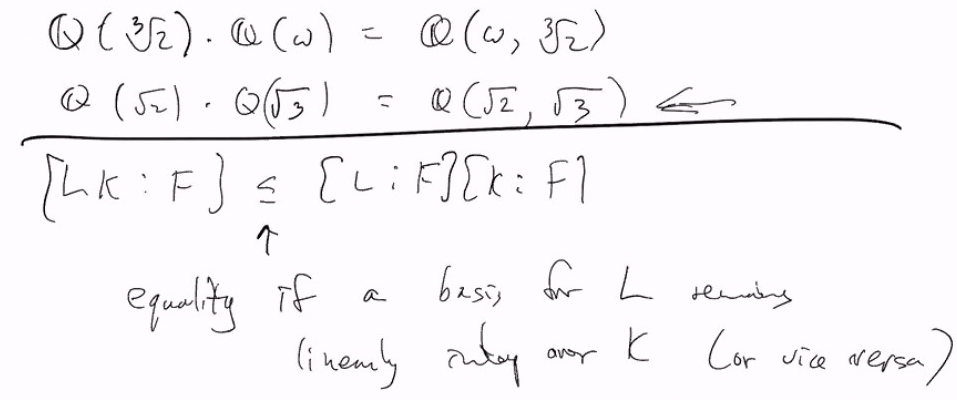 ℚ(∛2) · ℚ(ω) = ℚ(ω, ∛2)
ℚ(√2) · ℚ(√3) = ℚ(√2, √3) ⇐
[LK : F] ≤ [L : F][K : F]
↑
equality if a basis for L remains
linearly indep over K (or vice versa)